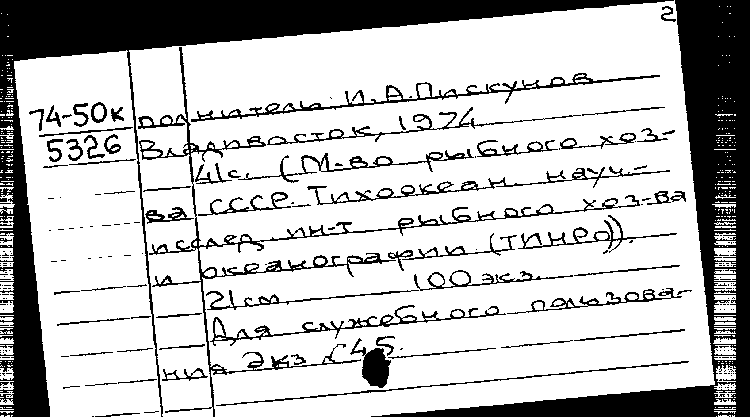 2
74-50к полнитель: И.А.Пискунов
5326 Владивосток, 1974
41с. (М-во рыбного хоз-
ва СССР. Тихоокеан. науч.-
исслед. ин-т рыбного хоз-ва
и океанографии (ТИНРО)).
21см. 100 экз.
Для служебного пользова-
ния. Экз. 45.